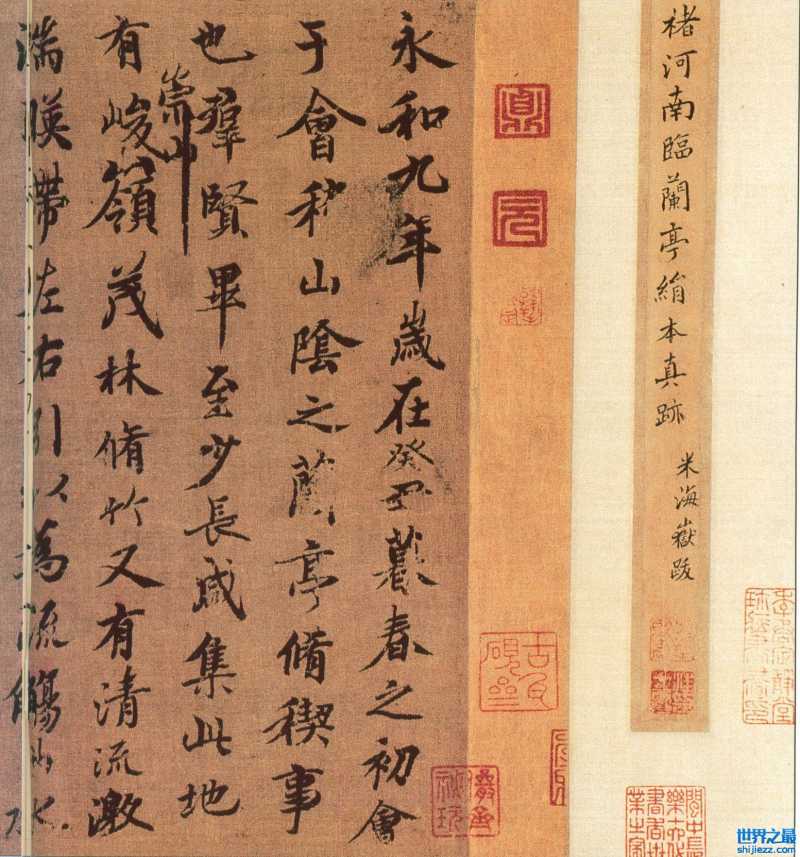 褚河南臨蘭亭絹本真跡
米海嶽跋
永和九年歲在癸丑暮春之初會
于會稽山陰之蘭亭脩稧事
也羣賢畢至少長咸集此地
崇山
有峻嶺茂林脩竹又有清流激
湍暎帶左右引以為流觴曲水
世界之最
shijiezz.com